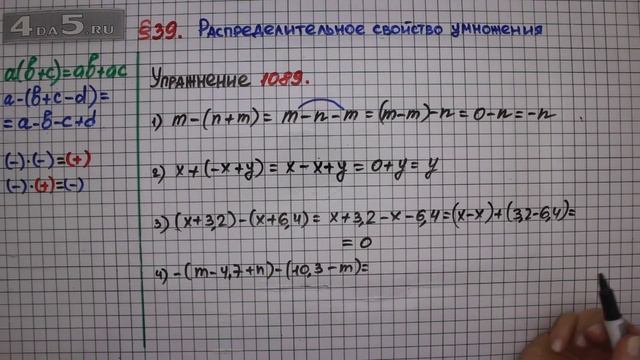 4DA5.RU
§39. Распределительное свойство умножения
a(b+c)=ab+ac
a-(b+c-d)=
=a-b-c+d
(-)·(-)=(+)
(-)·(+)=(-)
Упражнение 1089.
1) m-(n+m)= m-n-m=(m-m)-n=0-n=-n
2) x+(-x+y)=x-x+y=0+y=y
3) (x+3,2)-(x+6,4)= x+3,2-x-6,4=(x-x)+(3,2-6,4)=
=0
4) -(m-4,7+n)-(10,3-m)=